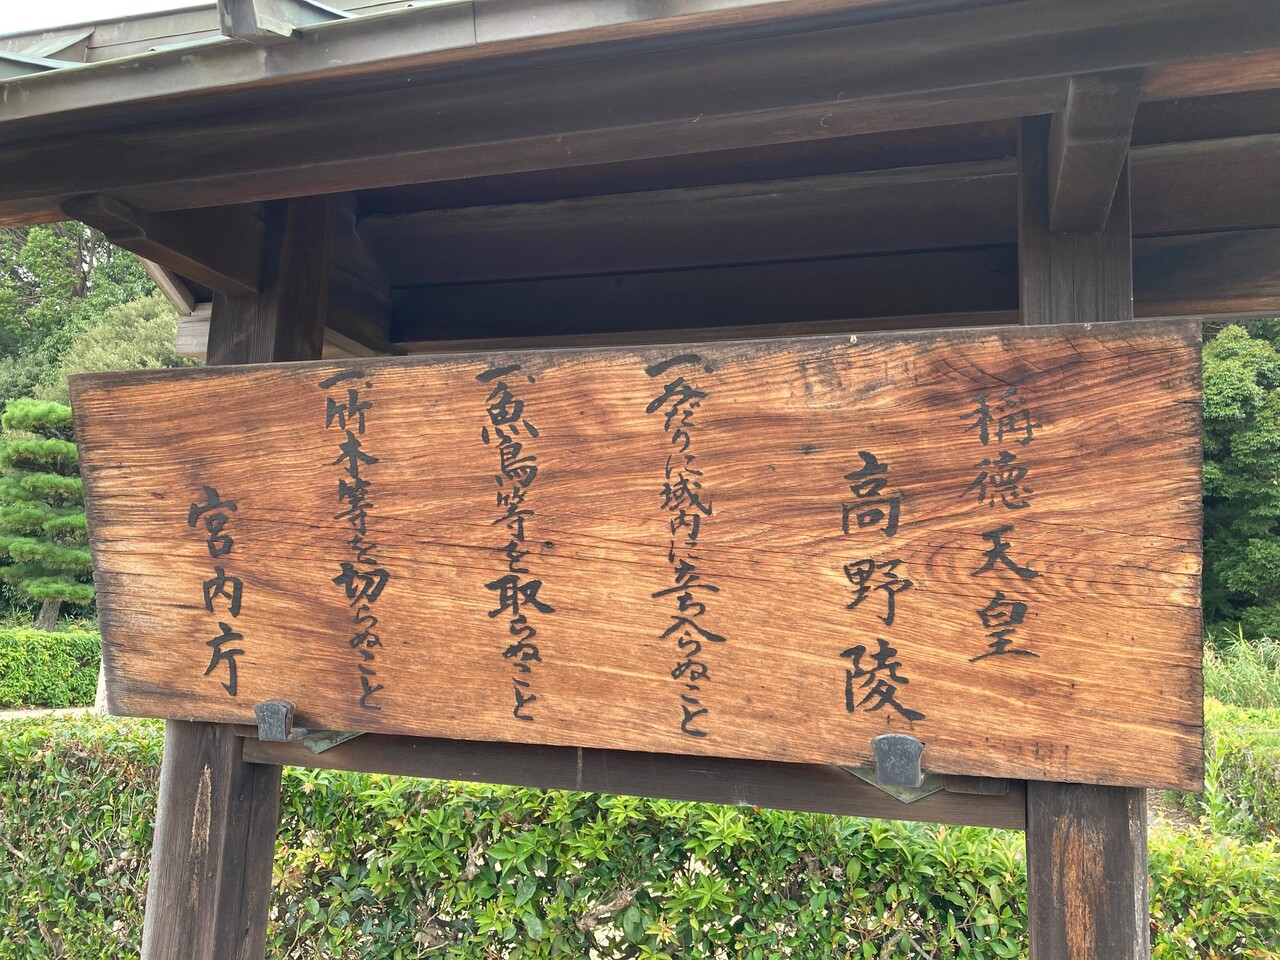 稱徳天皇
高野陵
一、みだりに域内に立ち入らぬこと
一、魚鳥等を取らぬこと
一、竹木等を切らぬこと
宮内庁